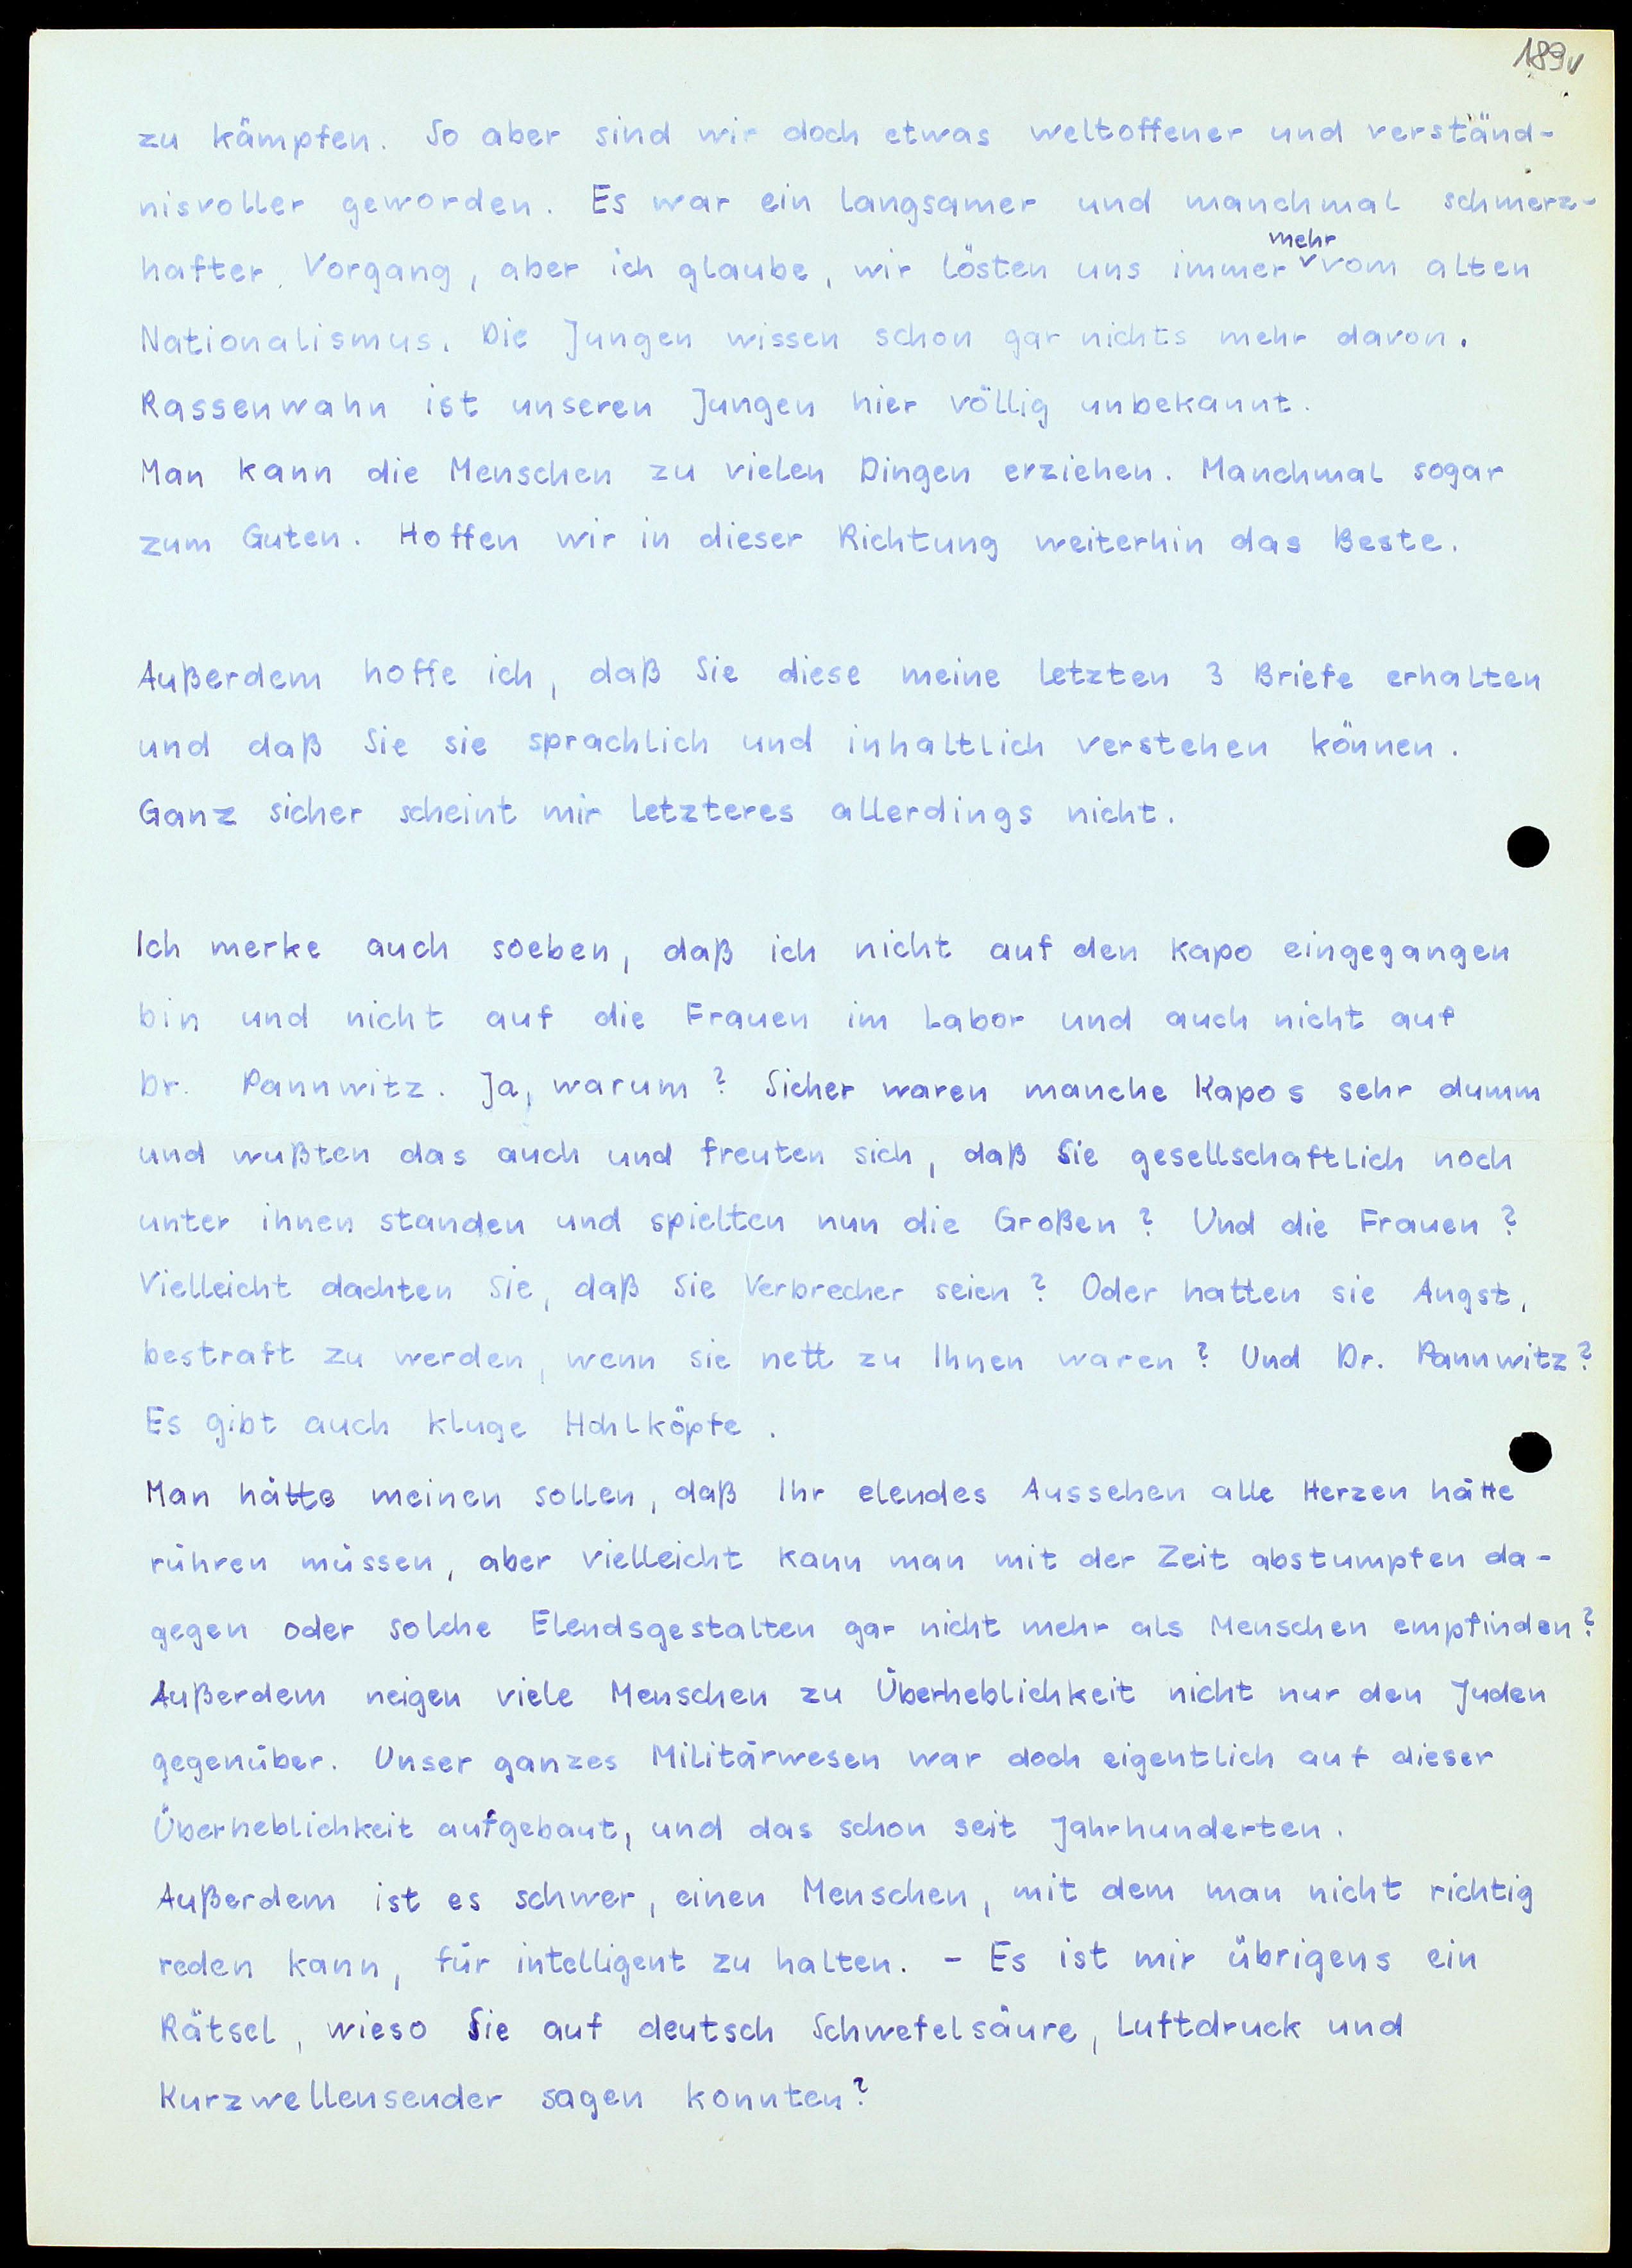 189v
zu kämpfen. So aber sind wir doch etwas weltoffener und verständ-
nisvoller geworden. Es war ein langsamer und manchmal schmerz-
mehr
hafter Vorgang, aber ich glaube, wir lösten uns immer vom alten
Nationalismus. Die Jungen wissen schon gar nichts mehr davon.
Rassenwahn ist unseren Jungen hier völlig unbekannt.
Man kann die Menschen zu vielen Dingen erziehen. Manchmal sogar
zum Guten. Hoffen wir in dieser Richtung weiterhin das Beste.
Außerdem hoffe ich, daß Sie diese meine letzten 3 Briefe erhalten
und daß Sie sie sprachlich und inhaltlich verstehen können.
Ganz sicher scheint mir letzteres allerdings nicht.
Ich merke auch soeben, daß ich nicht auf den Kapo eingegangen
bin und nicht auf die Frauen im Labor und auch nicht auf
Dr. Pannwitz. Ja, warum? Sicher waren manche Kapos sehr dumm
und wußten das auch und freuten sich, daß Sie gesellschaftlich noch
unter ihnen standen und spielten nun die Großen? Und die Frauen?
Vielleicht dachten Sie, daß Sie Verbrecher seien? Oder hatten sie Angst,
bestraft zu werden, wenn sie nett zu Ihnen waren? Und Dr. Pannwitz?
Es gibt auch kluge Hohlköpfe.
Man hätte meinen sollen, daß Ihr elendes Aussehen alle Herzen hätte
rühren müssen, aber vielleicht kann man mit der Zeit abstumpfen da-
gegen oder solche Elendsgestalten gar nicht mehr als Menschen empfinden?
Außerdem neigen viele Menschen zu Überheblichkeit nicht nur den Juden
gegenüber. Unser ganzes Militärwesen war doch eigentlich auf dieser
Überheblichkeit aufgebaut, und das schon seit Jahrhunderten.
Außerdem ist es schwer, einen Menschen, mit dem man nicht richtig
reden kann, für intelligent zu halten. - Es ist mir übrigens ein
Rätsel, wieso Sie auf deutsch Schwefelsäure, Luftdruck und
Kurzwellensender sagen konnten?